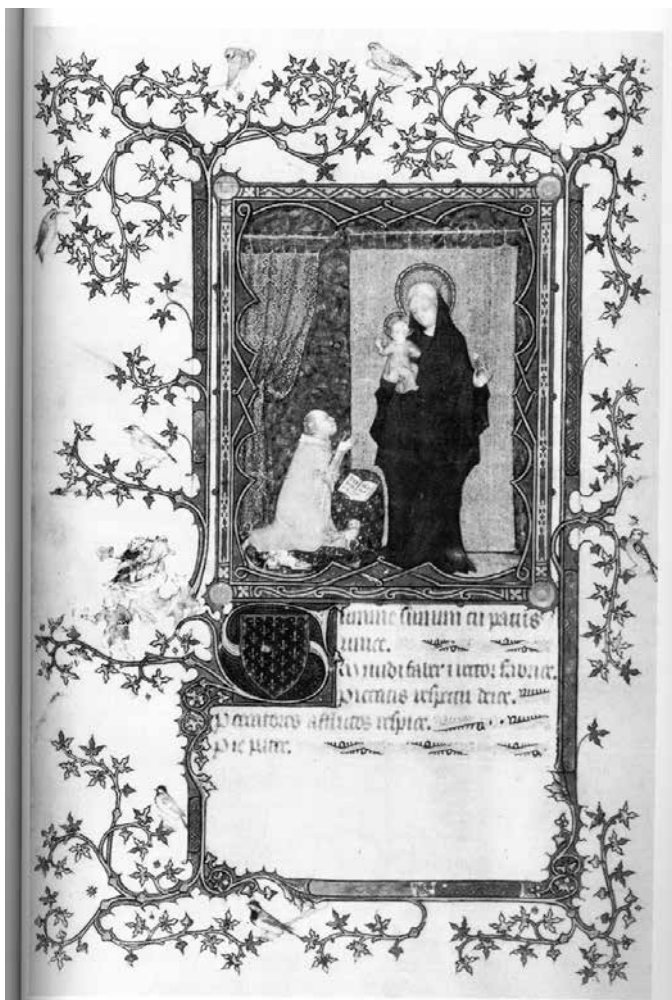 Summe summi tu patris
unice.
Mundi faber ⁊ rector fabrice.
Pietatis respectu deice.
Peccatores afflictos respice.
Pie pater.